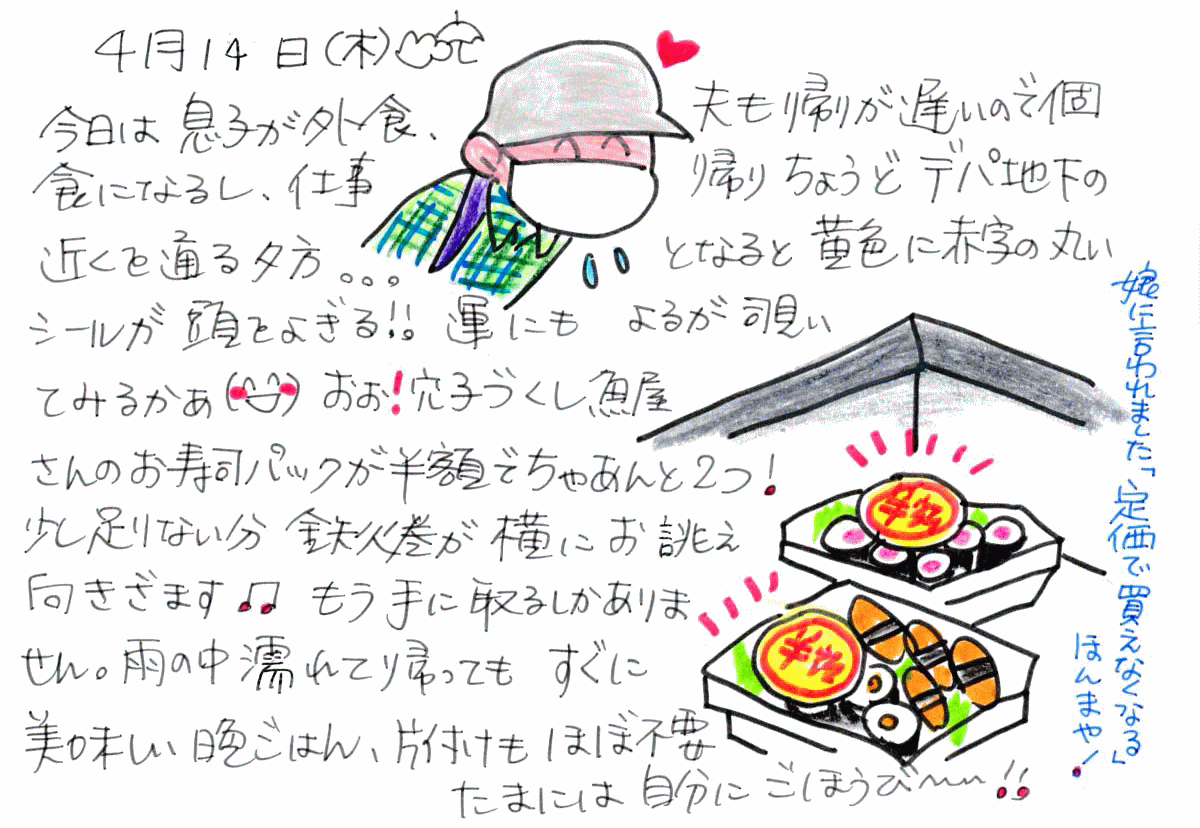 4月14日(木)
今日は息子が外食、夫も帰りが遅いので個
食になるし、仕事帰りちょうどデパ地下の
近くを通る夕方。。。となると黄色に赤字の丸い
シールが頭をよぎる!!運にもよるが覗い
てみるかあ おぉ!穴子づくし魚屋
さんのお寿司パックが半額でちゃあんと2つ!
少し足りない分 鉄火巻が横にお誂え
向きざます♫ もう手に取るしかありま
せん。雨の中濡れて帰っても すぐに
美味しい晩ごはん、片付けもほぼ不要
たまには自分にごほうび〜〜!!
半額
半額
娘に言われました「定価で買えなくなる」
ほんまや!